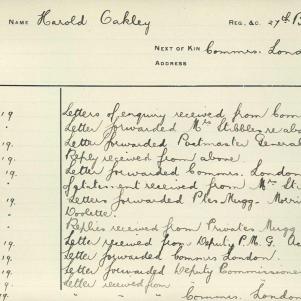 NAME Harold Oakley REG. &C. 27th B
NEXT OF KIN Commrs. Lond
ADDRESS
19 Letters of enquiry received from Com
" Letter forwarded Mrs Stibbles re ab
19. Letter forwarded Postmaster General
19. Reply received from above.
19. Letter forwarded Commrs. London
of statement received from Mrs St
19. Letters forwarded Ptes. Mugg - Morri
Woolette.
" Replies received from Privates Mugg
19. Letter received from Deputy P.M.G. Ac
19. Letter forwarded Commrs London.
19 Letter forwarded Deputy Commissione
19. Letter received from
" " " Commrs. London